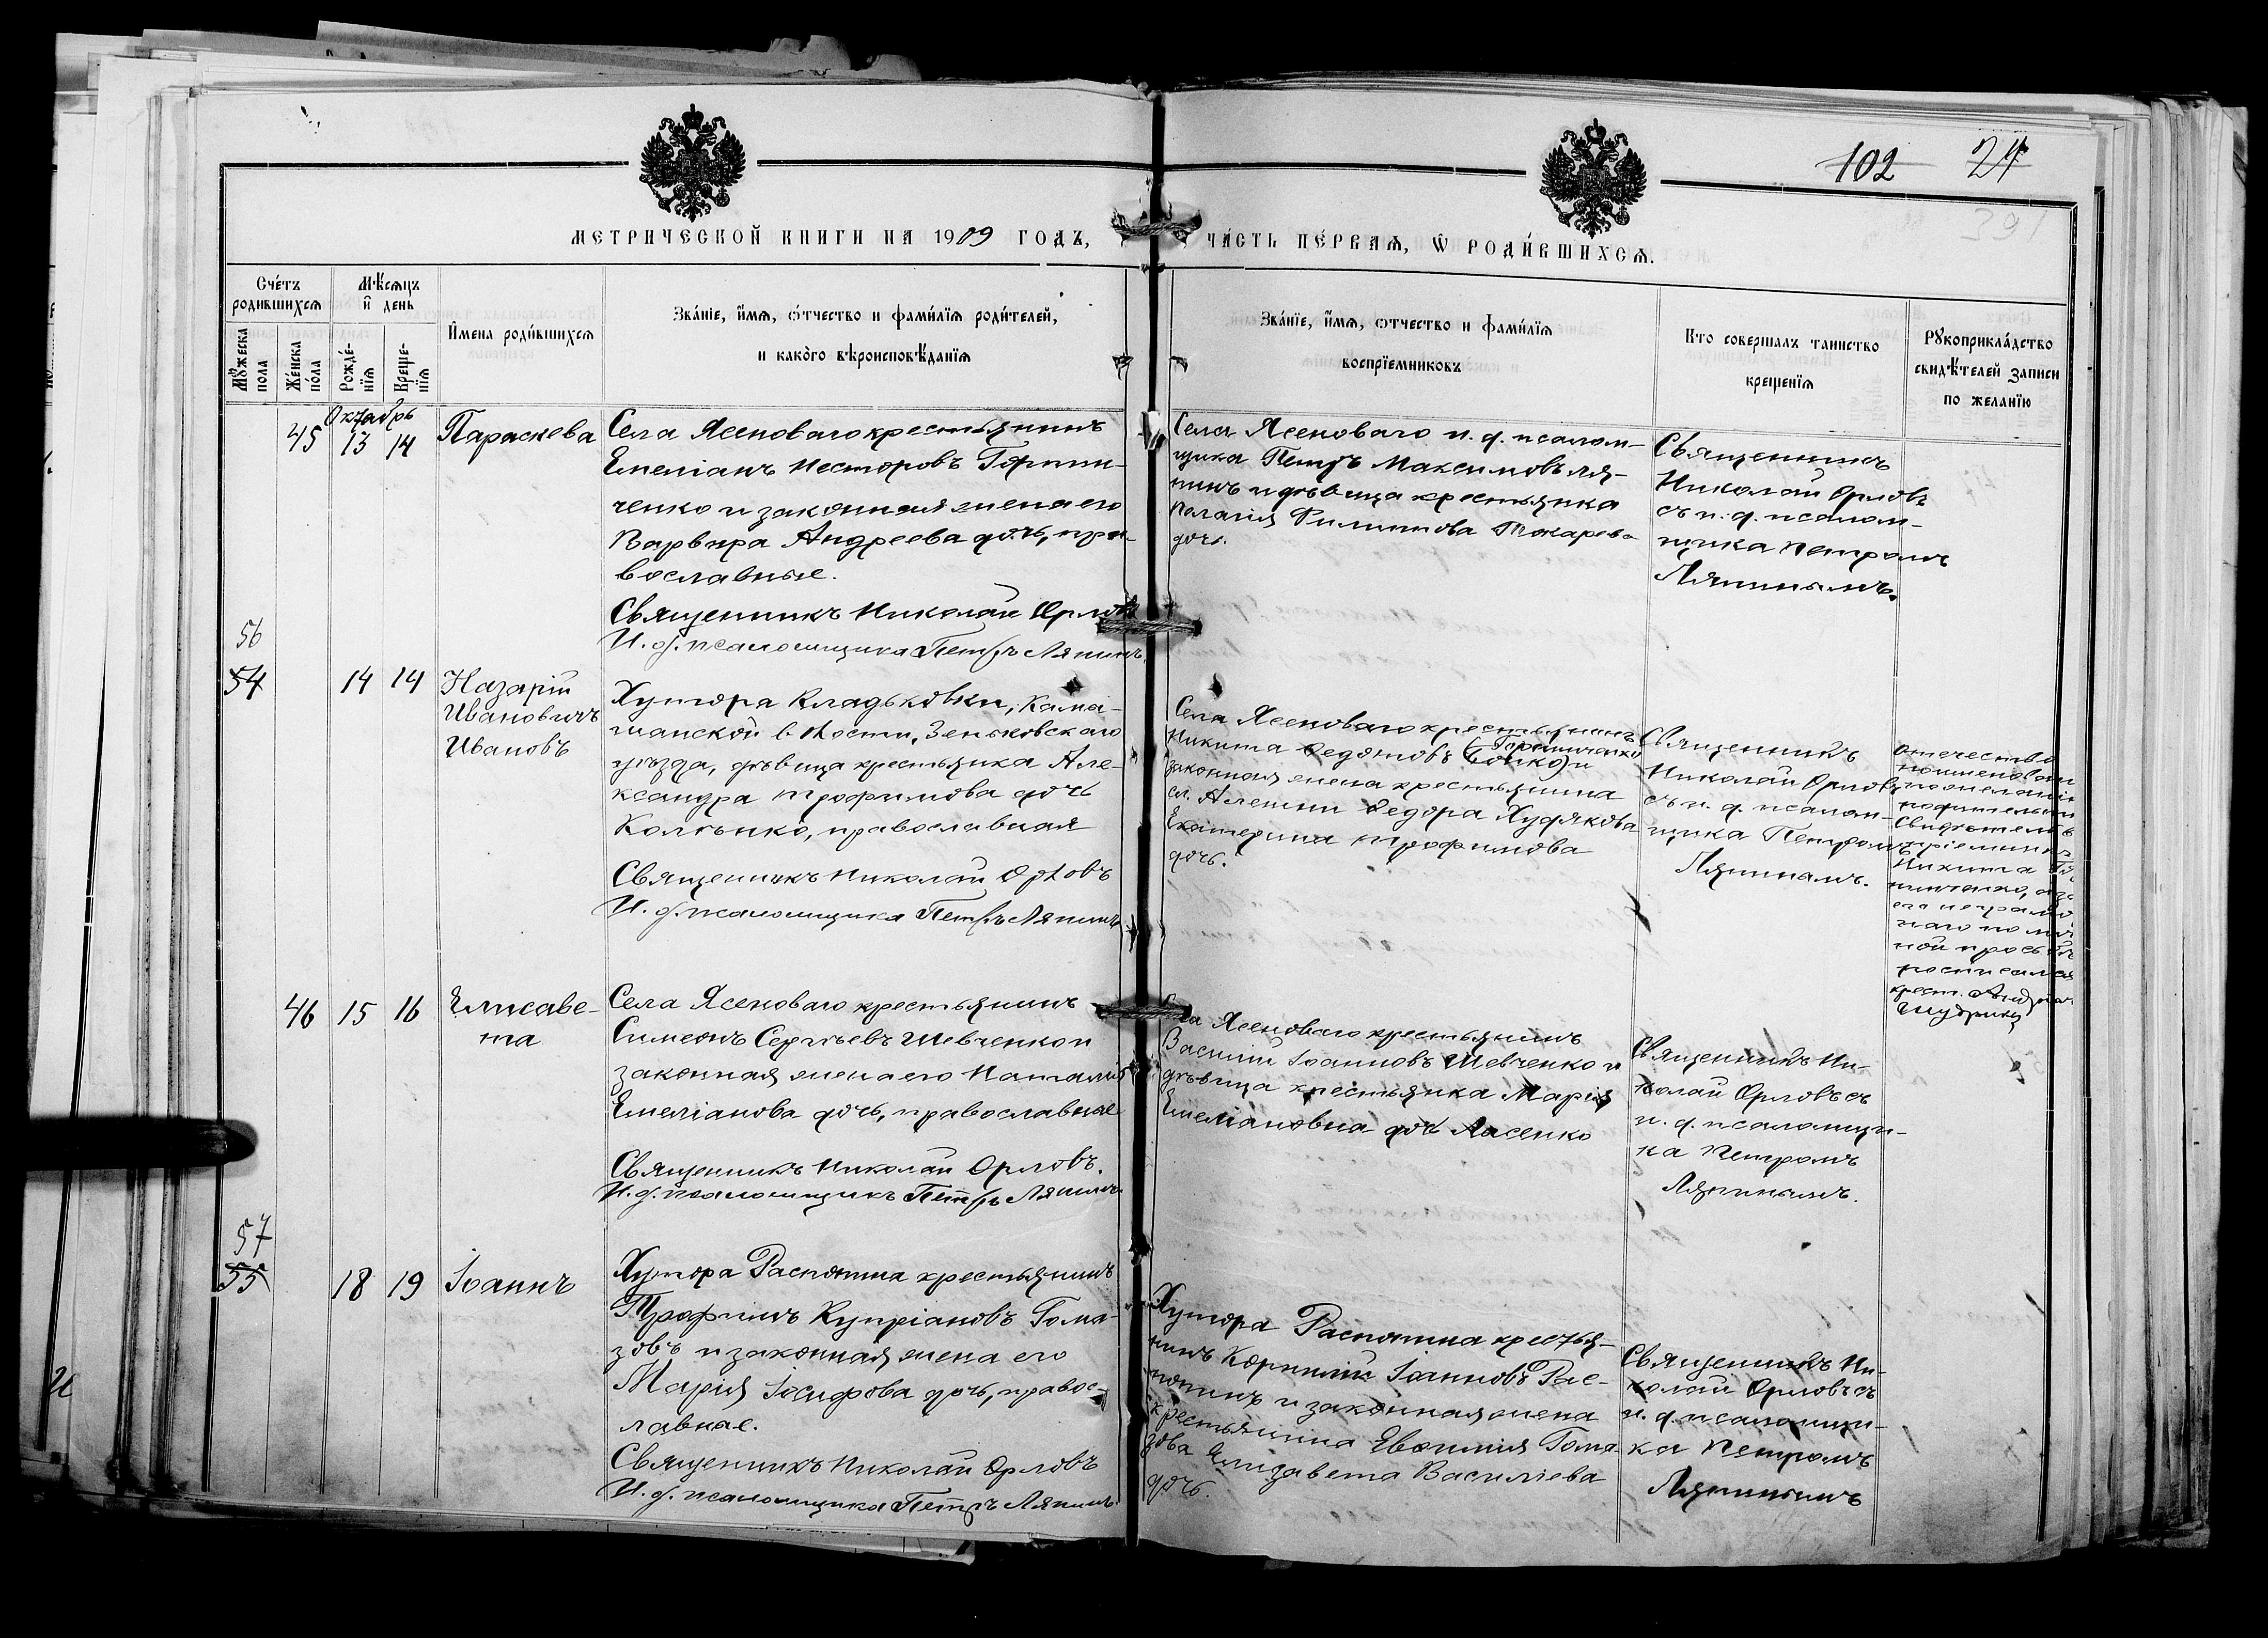 102 24
391
МЕТРИЧЕСКОЙ КНИГИ НА 1909 ГОДЪ,
ЧАСТЬ ПЕРВАЯ, Ѡ РОДИВШИХСЯ.
Счетъ родившихся
Мѣсяцъ и день
Имена родившихся
Званіе, имя, ѻтчество и фамилїя родителей,
и какого вѣроисповѣданїя
Мужеска пола
Женска пола
Рожденїя
Крещенїя
Званїе, имя, ѻтчество и фамилїя
воспрїемниковъ
Кто совершалъ таинство
крещенїя
Рукоприкладство
свидѣтелей записи
по желанїю
Октябрь
45 13 14 Параскева
Села Ясеноваго крестьянинъ
Емеліанъ Несторовъ Горпин-
ченко и законная жена его
Варвара Андреева дочь, пра-
вославные.
Священникъ Николай Орловъ
И. д. псаломщика Петръ Ляпинъ.
Села Ясеноваго и. д. псалом-
щика Петръ Максимовъ Ля-
пинъ и дѣвица крестьянка
Пелагія Филиппова Токарева
дочь.
Священникъ
Николай Орловъ
съ и. д. псалом-
щика Петромъ
Ляпинымъ.
56
54 14 14 Назарій
Ивановичъ
Ивановъ
Хутора Кладьковки,
волости, Зеньковскаго
уѣзда, дѣвица крестьянка Але-
ксандра Трофимова дочь
православная
Священникъ Николай Орловъ
И. д. псаломщика Петръ Ляпинъ
Села Ясеноваго крестьянинъ
Никита Федотовъ и
законная жена крестьянина
сл. Алешни Федора Худякова
Екатерина Трофимова
дочь.
Священникъ
Николай Орловъ
съ и. д. псалом-
щика Петромъ
Ляпинымъ.
отечество
Никита
ной просьбѣ
росписался
крест.
46 15 16 Елисаве-
та
Села Ясеноваго крестьянинъ
Симеонъ Сергѣевъ Шевченко и
законная жена его Наталія
Емеліанова дочь, православные
Священникъ Николай Орловъ.
И. д. псаломщикъ Петръ Ляпинъ
Села Ясеноваго крестьянинъ
Василій Іоанновъ Шевченко и
дѣвица крестьянка Марія
Емеліановна дочь Лисенко
Священникъ Ни-
колай Орловъ съ
и. д. псаломщи-
ка Петромъ
Ляпинымъ.
57
55 18 19 Іоаннъ
Хутора Распопина крестьянинъ
Трофимъ Купріановъ Гома-
зовъ и законная жена его
Марія Іосифова дочь, правос-
лавные.
Священникъ Николай Орловъ
И. д. псаломщика Петръ Ляпинъ.
Хутора Распопина крестья-
нинъ Корнилій Іоанновъ Рас-
попинъ и законная жена
крестьянина Евѳимія Гома-
зова Елизавета Василіева
дочь.
Священникъ Ни-
колай Орловъ съ
и. д. псаломщи-
ка Петромъ
Ляпинымъ